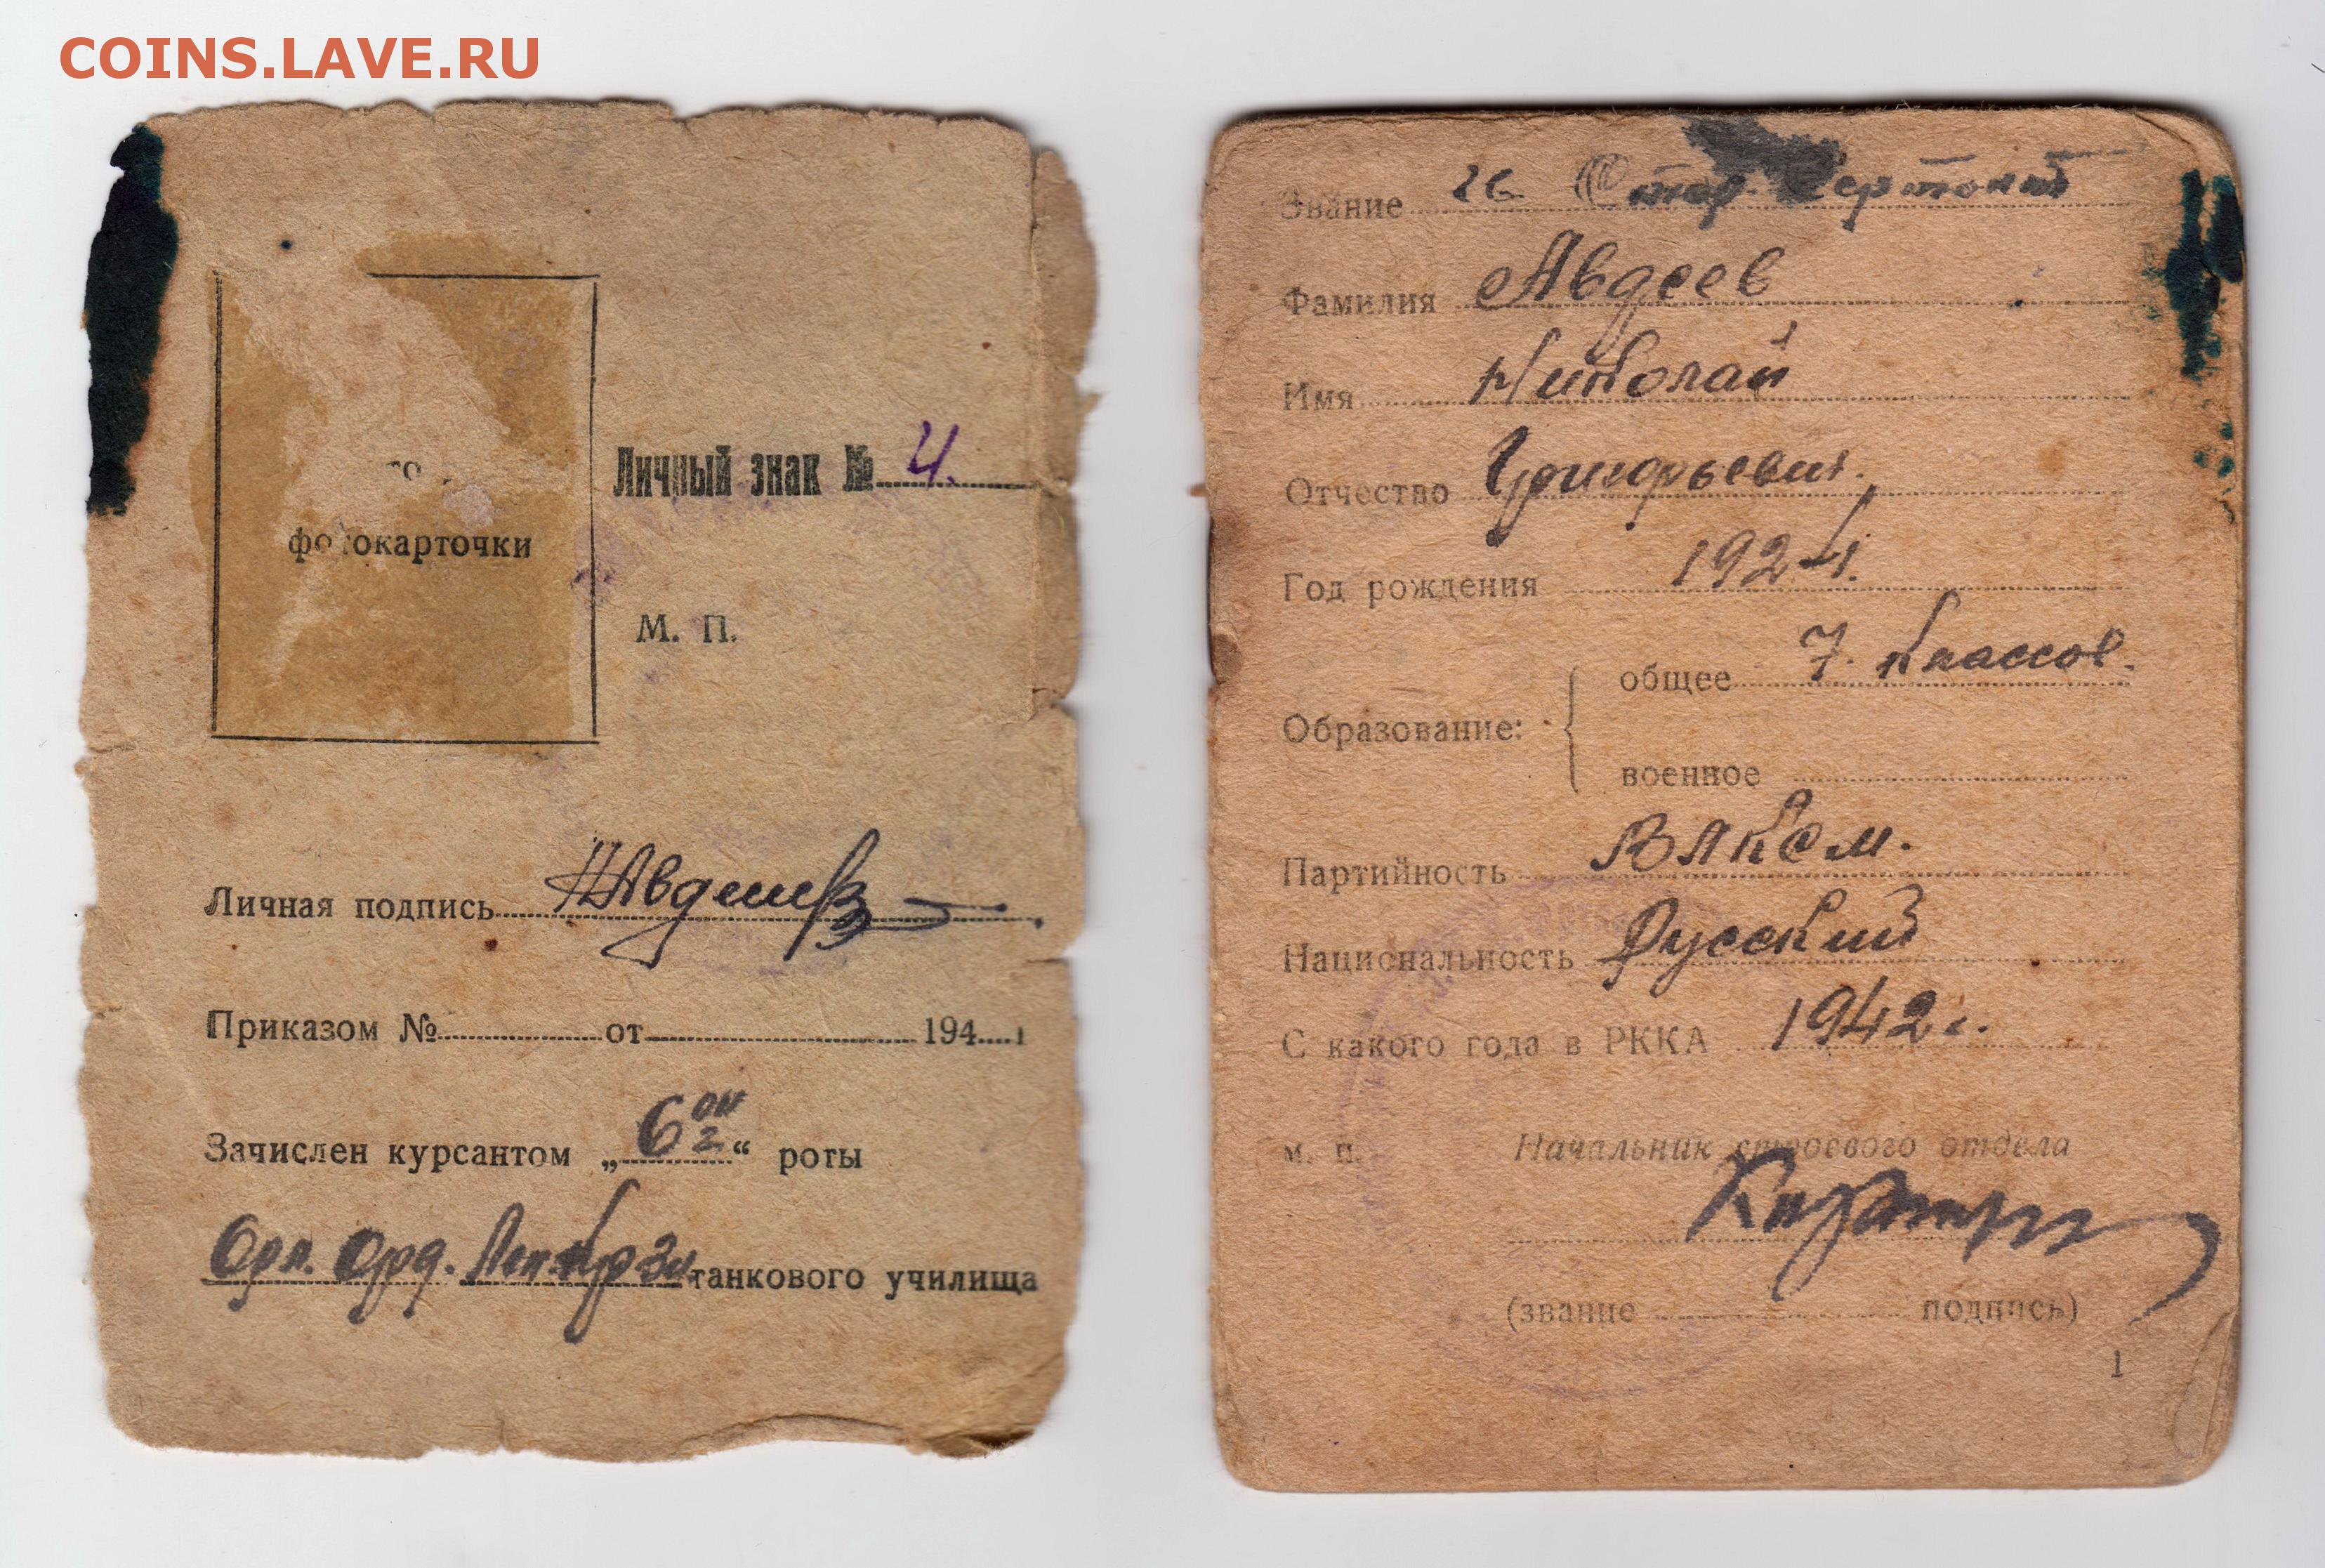 COINS.LAVE.RU
фотокарточки
Личный знак № 4.
М. П.
Личная подпись НАвдеев
Приказом № от 194
Зачислен курсантом „6ой“ роты
Орл. Орд. Лен. танкового училища
Звание Стар. Сержант
Фамилия Авдеев
Имя Николай
Отчество Григорьевич.
Год рождения 1924.
общее 7. Классов.
Образование:
военное
Партийность ВЛКСМ.
Национальность Русский
С какого года в РККА 1942 г.
М. П. Начальник строевого отдела
(звание подпись)
1